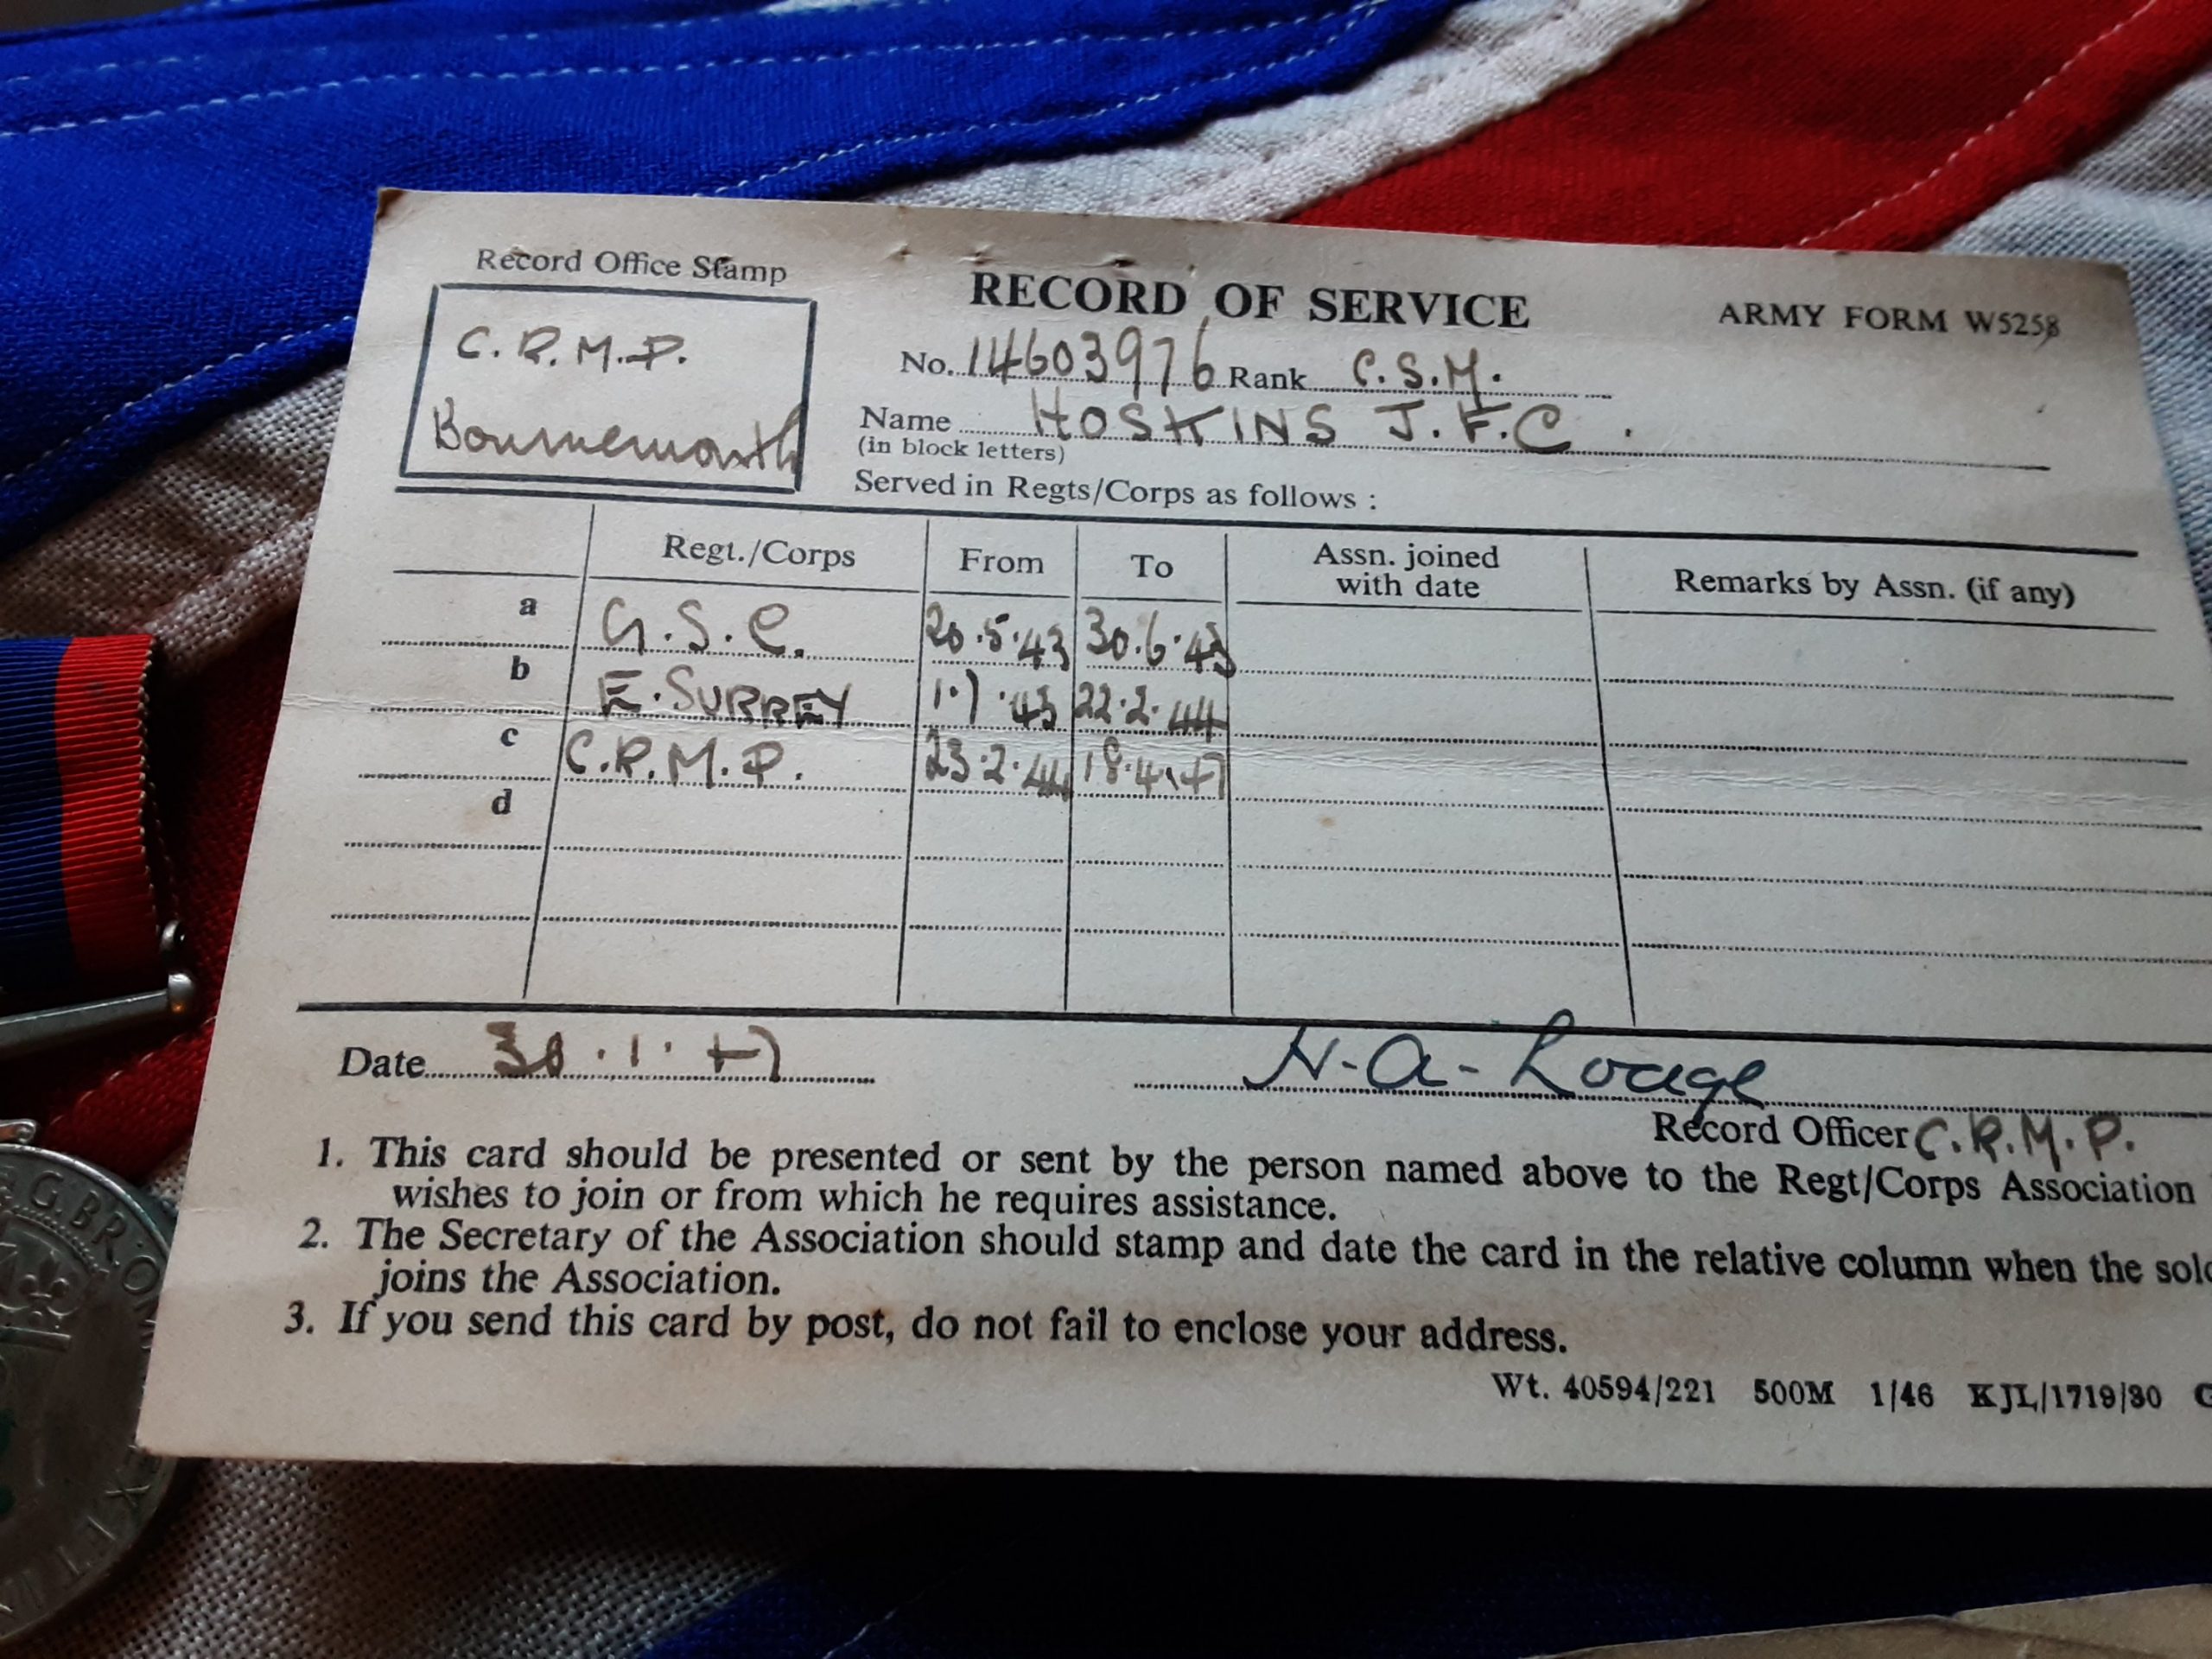 Record Office Stamp
C.R.M.P.
Bournemouth
RECORD OF SERVICE
ARMY FORM W5258
No. 14603976 Rank C.S.M.
Name HOSKINS J.F.C.
(in block letters)
Served in Regts/Corps as follows :
Regt./Corps From To Assn. joined with date Remarks by Assn. (if any)
a G.S.C. 20.5.43 30.6.43
b E. SURREY 1.7.43 22.2.44
c C.R.M.P. 23.2.44 18.4.47
d
Date 30.1.47
H.A.
Record Officer C.R.M.P.
1. This card should be presented or sent by the person named above to the Regt/Corps Association
wishes to join or from which he requires assistance.
2. The Secretary of the Association should stamp and date the card in the relative column when the sol
joins the Association.
3. If you send this card by post, do not fail to enclose your address.
Wt. 40594/221 500M 1/46 KJL/1719/30 G
G.BR:O